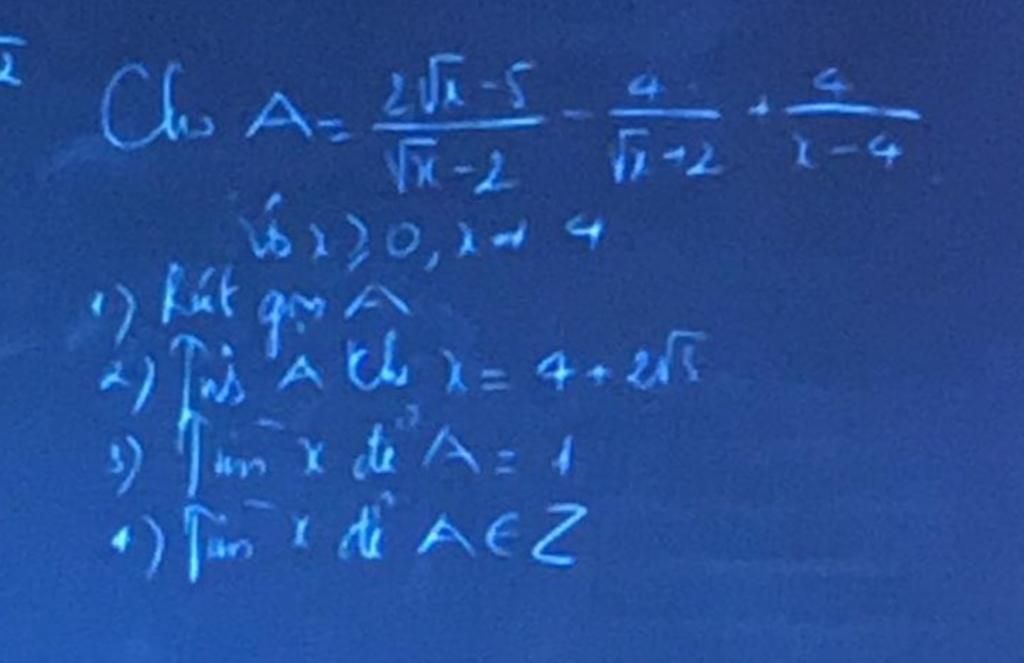 Cho A = \frac{2\sqrt{x}-5}{\sqrt{x}-2} - \frac{4}{\sqrt{x}+2} + \frac{4}{x-4}
với x ≥ 0, x ≠ 4
1) Rút gọn A
2) Tính A khi x = 4 + 2√3
3) Tìm x để A = 1
4) Tìm x để A ∈ Z